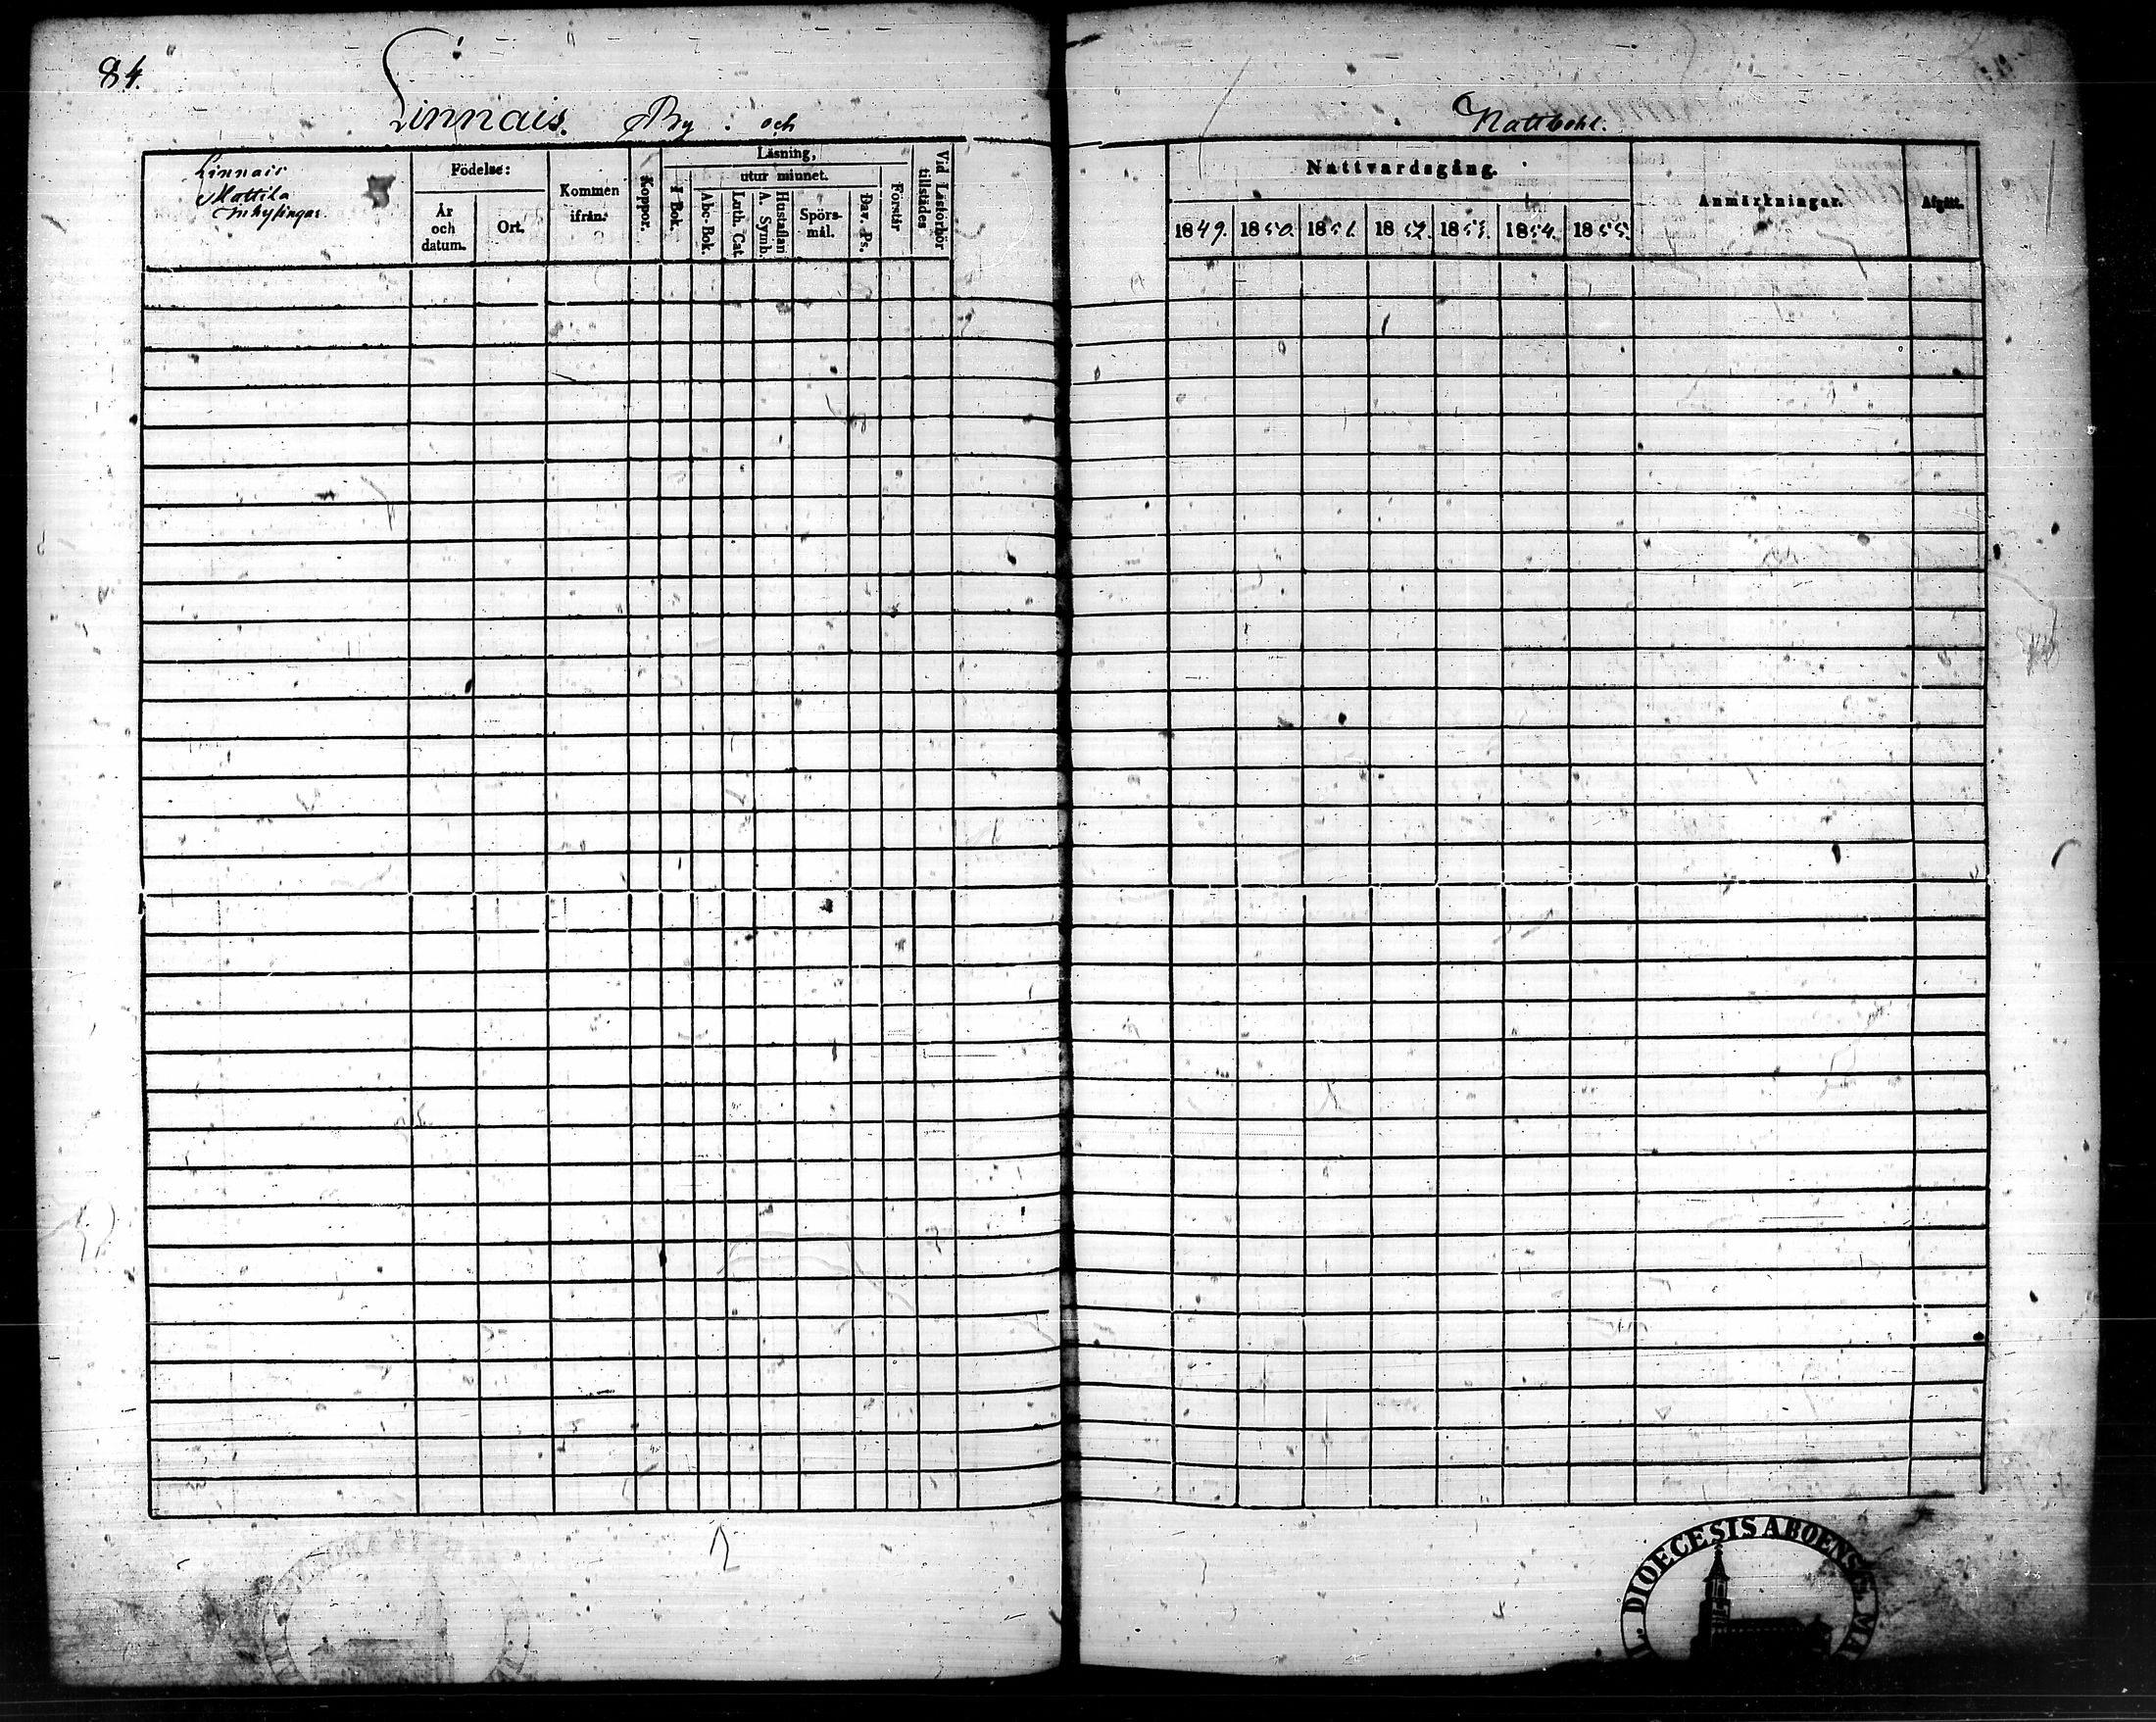 84.
Linnais. By. och
Nattbohl.
Linnais
Mattila
Inhysingar.
Födelse:
År
och
datum.
Ort.
Kommen
ifrån.
Koppor.
Läsning,
I Bok.
utur minnet.
Abc-Bok.
Luth. Cat.
Hustaflan
A. Symb.
Spörs-
mål.
Dav. Ps.
Förstår
Vid Läsförhör
tillstädes
Nattvardsgång.
1849. 1850. 1851. 1852. 1853. 1854. 1855.
Anmärkningar.
Afgått.
DIOECESIS ABOENS